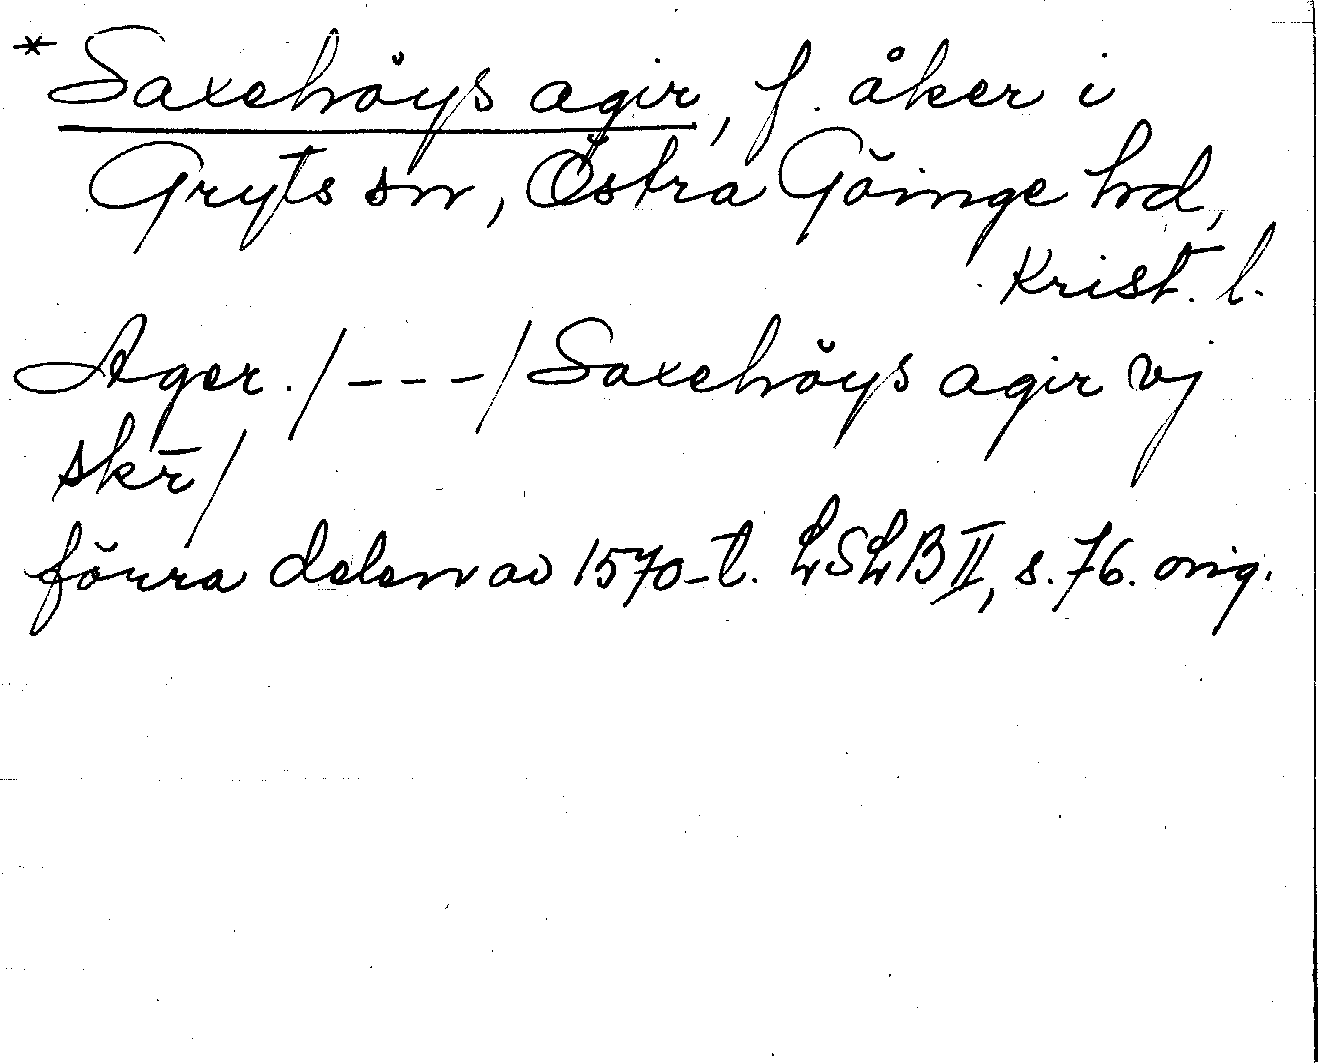 * Saxehöys agir, f. åker i
Gryts sn, Östra Göinge hd,
Krist. l.
Ager. /---/ Saxehöys agir vj
skr̄/
förra delen av 1570-t. LSLB II, s. 76. orig.